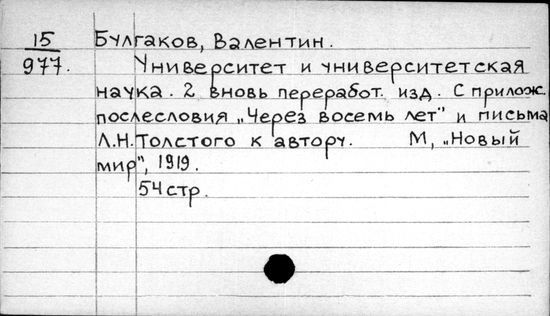 15 Булгаков, Валентин.
977. Университет и университетская
наука. 2 вновь переработ. изд. С прилож.
послесловия „Через восемь лет" и письма
Л.Н.Толстого к автору. М, „Новый
мир", 1919.
54 стр.